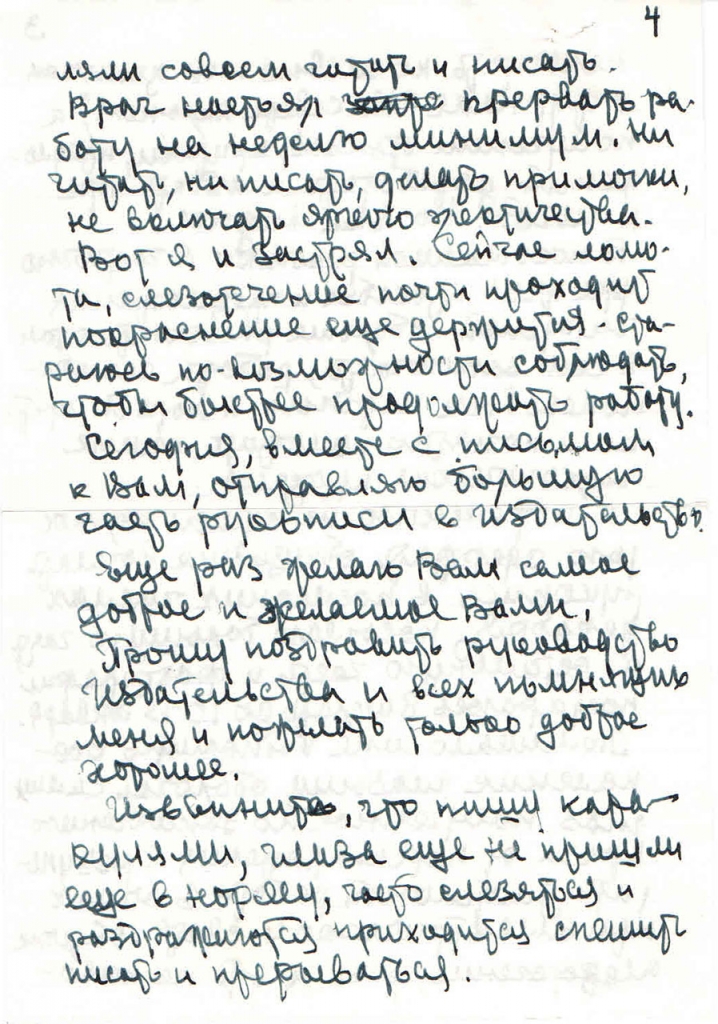 4
ляли совсем читать и писать.
Врач настоял прервать ра-
боту на неделю минимум. ни
читать, ни писать, делать примочки,
не включать яркого электичества.
Вот я и застрял. Сейчас ломо-
та, слезотечение почти проходит
покраснение еще держится - ста-
раюсь по-возможности соблюдать,
чтобы быстрее продолжать работу.
Сегодня, вместе с письмом
к Вам, отправляю большую
часть рукописи в издательство.
Еще раз желаю Вам самое
доброе и желаемое Вами,
Прошу поздравить руководство
издательства и всех помнящих
меня и пожелать только доброе
хорошее.
Извините, что пишу кара-
кулями, глаза еще не пришли
еще в норму, часто слезяться и
раздражаются приходится спешить
писать и прерываться.